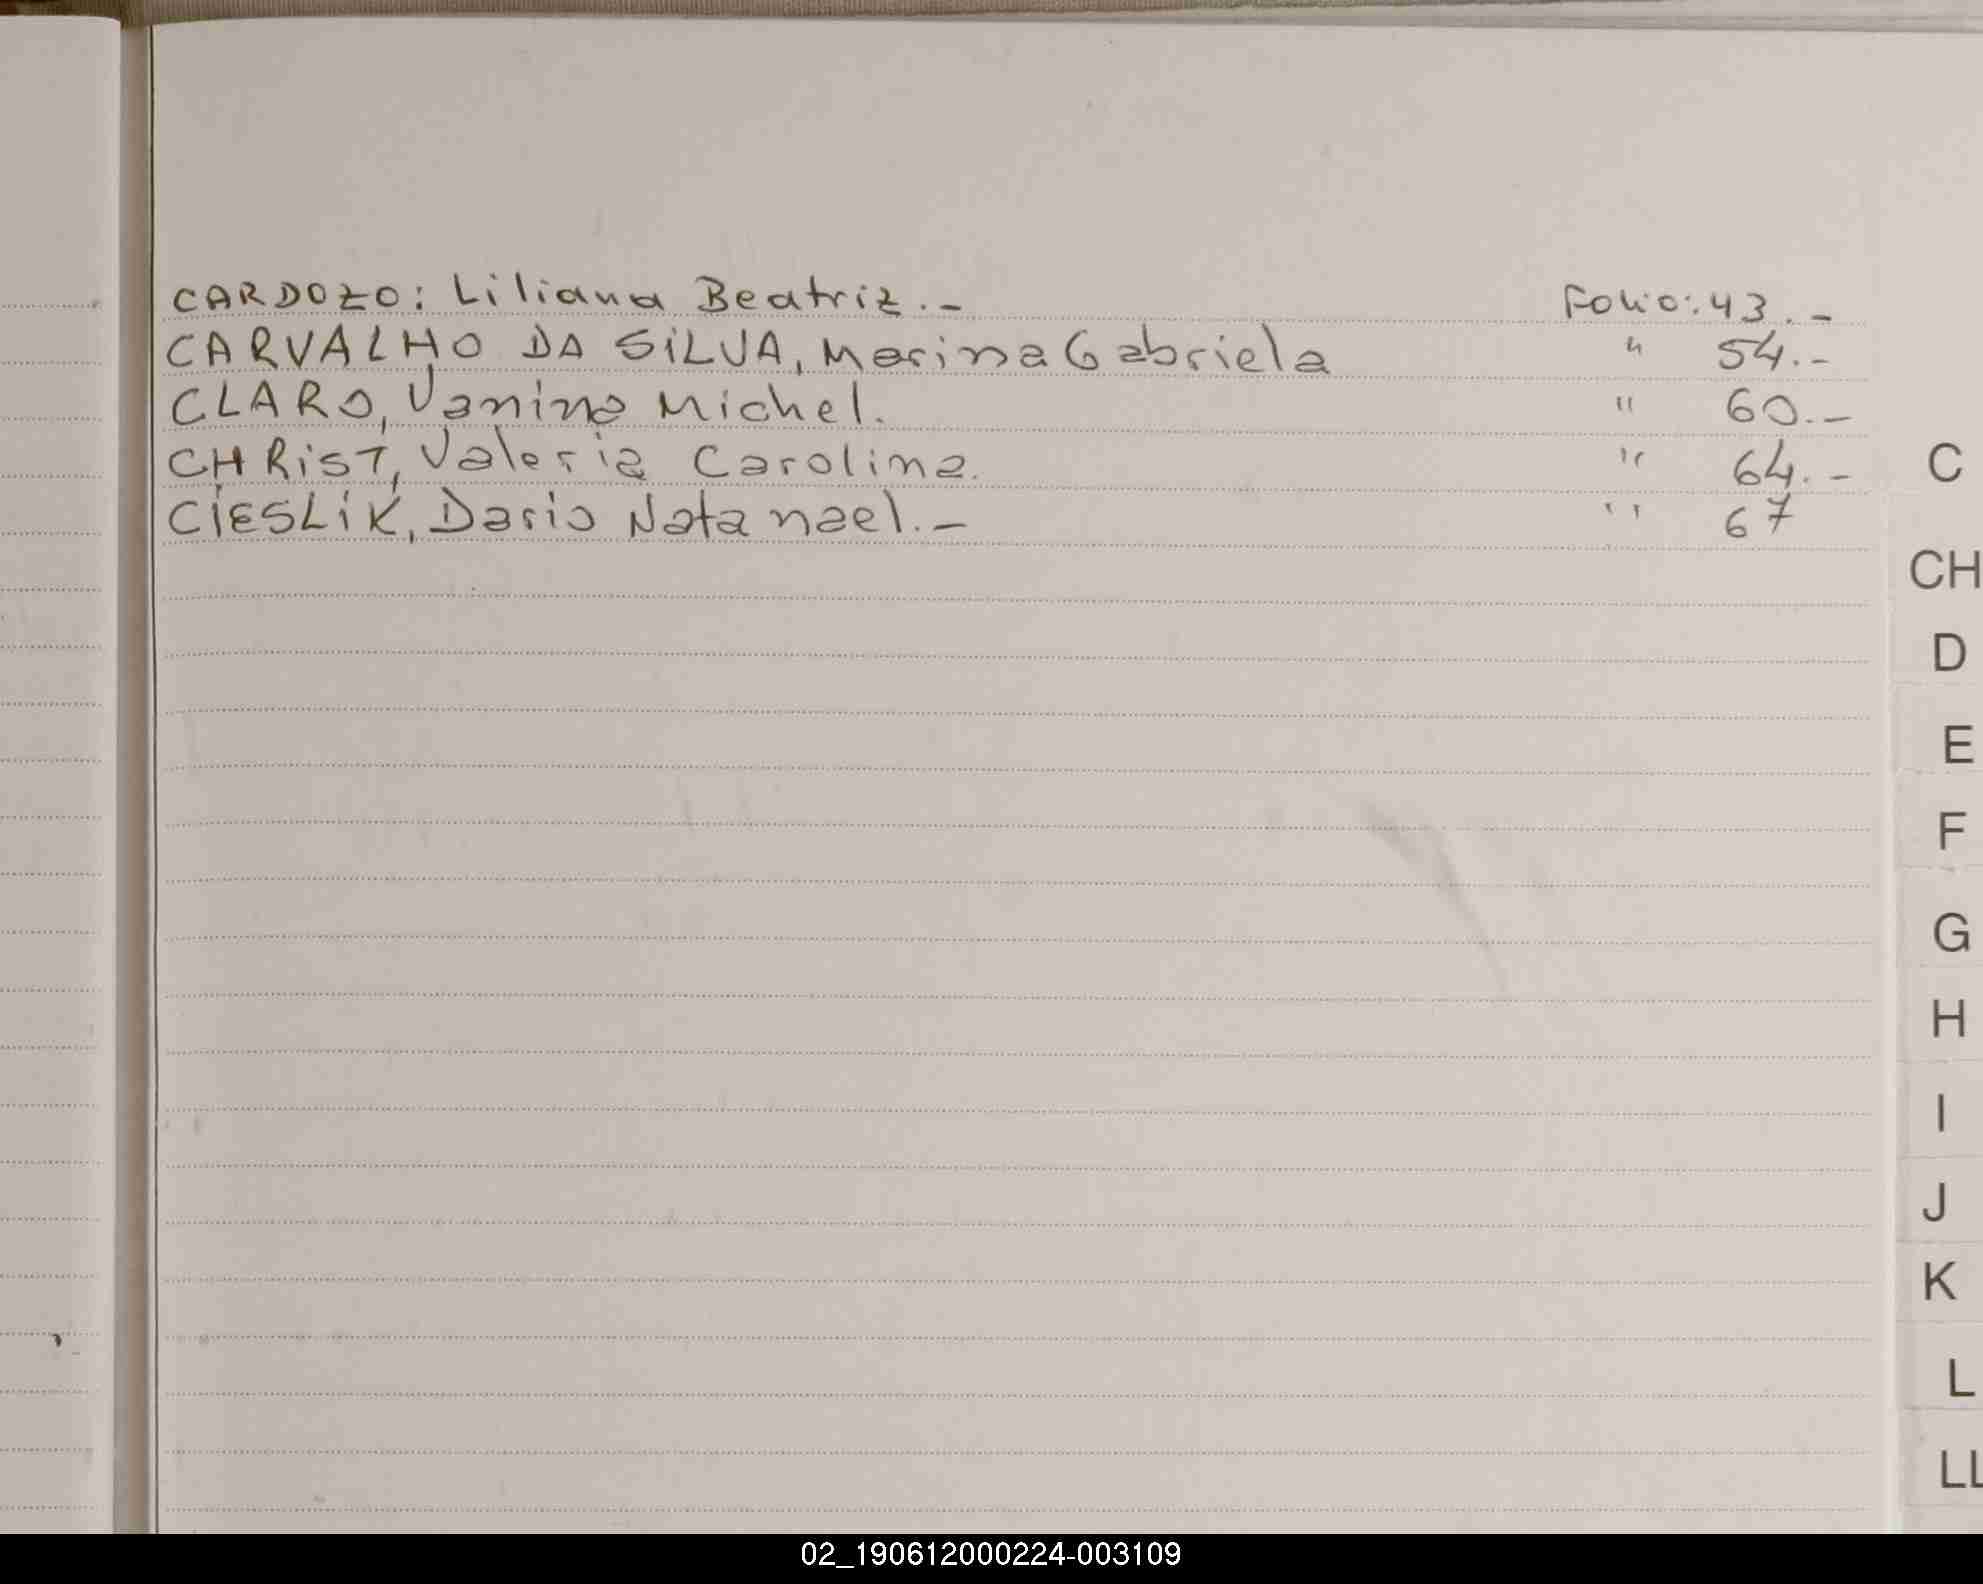 CARDOZO: Liliana Beatriz.- Folio: 43.-
CARVALHO DA SILVA, Marina Gabriela " 54.-
CLARO, Vanina Michel. " 60.-
CHRIST, Valeria Carolina. " 64.-
CIESLIK, Dario Natanael.- " 67
C
CH
D
E
F
G
H
I
J
K
L
LL
02_190612000224-003109